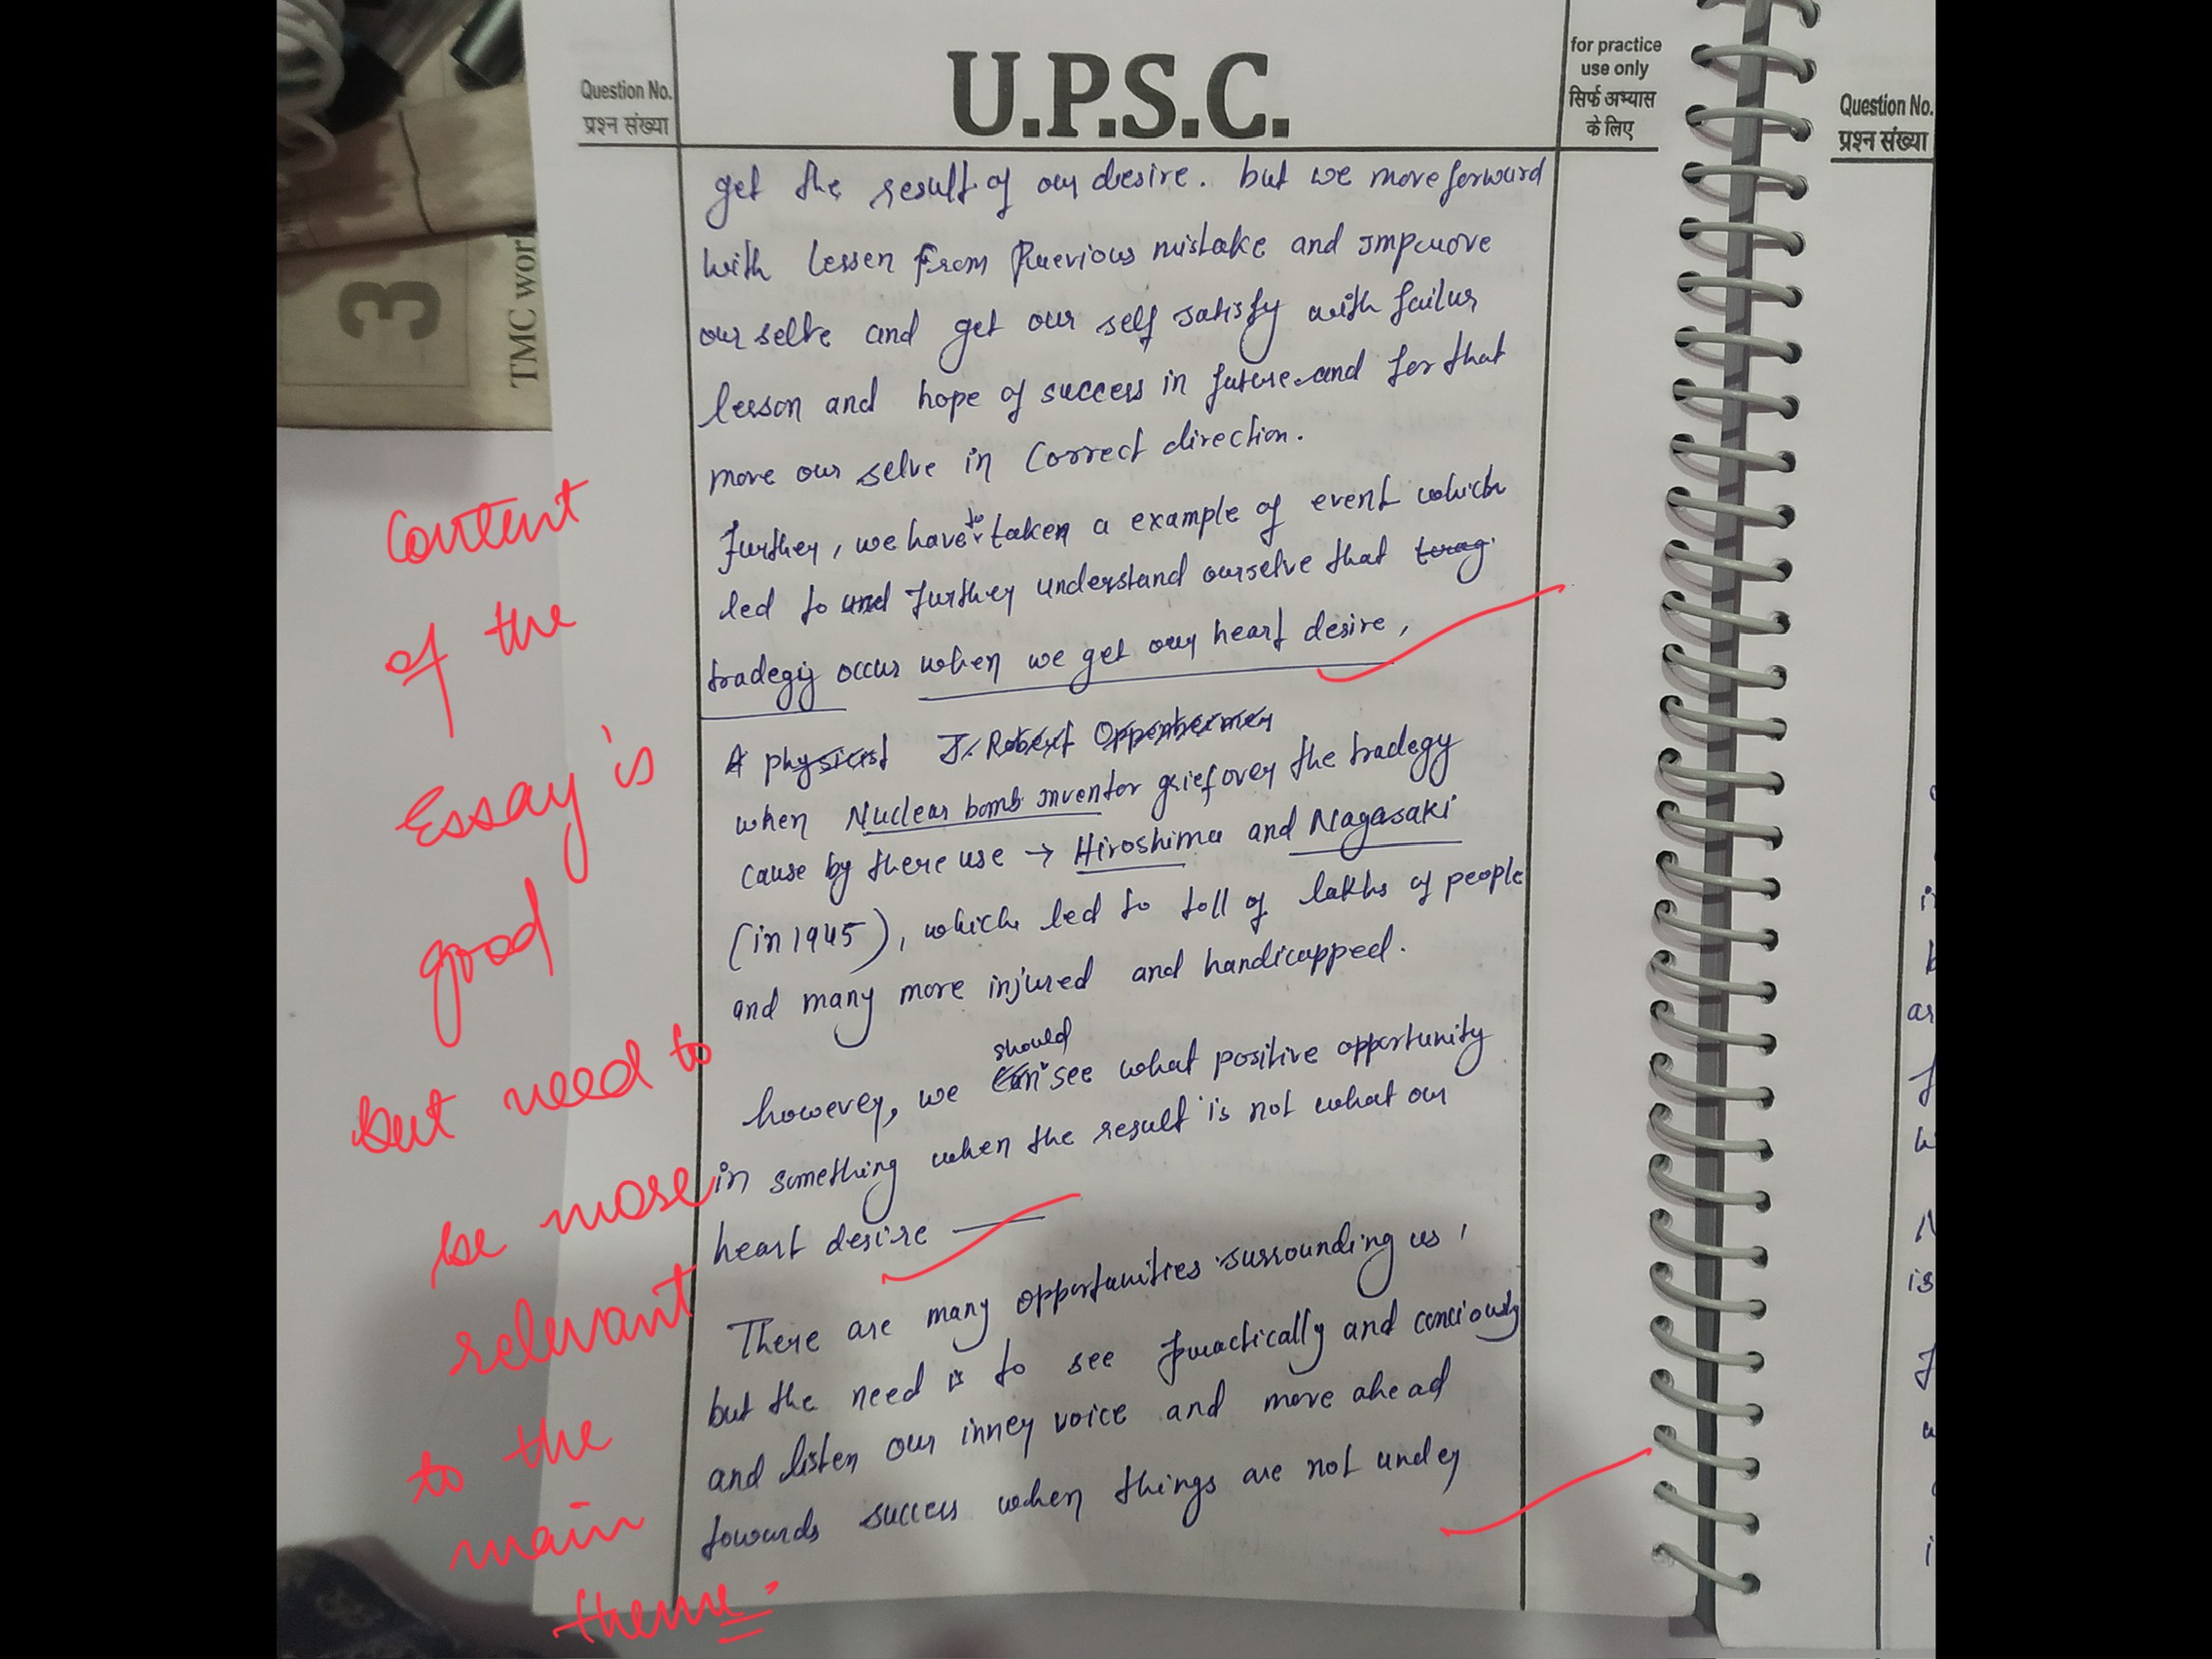 U.P.S.C.
Question No.
प्रश्न संख्या
for practice
use only
सिर्फ अभ्यास
के लिए
Question No.
प्रश्न संख्या
3
TMC wor
get the result of our desire. but we move forward
with lessen From Previous mistake and improve
our selve and get our self satisfy with failur
lesson and hope of success in future and for that
move our selve in Correct direction.
Further, we have to taken a example of event which
led to und Further understand ourselve that trag
tradegy occur when we get our heart desire,
A physicist J. Robert Oppenheimer
when Nuclear bomb inventor grief over the tradegy
cause by there use → Hiroshima and Nagasaki
(in 1945), which led to toll of lakhs of people
and many more injured and handicapped.
however, we should can see what positive opportunity
in something when the result is not what our
heart desire —
There are many opportunities surrounding us,
but the need is to see practically and conciously
and listen our inner voice and move ahead
towards success when things are not under
Content
of the
Essay is
good
but need to
be more
relevant
to the
main
theme.